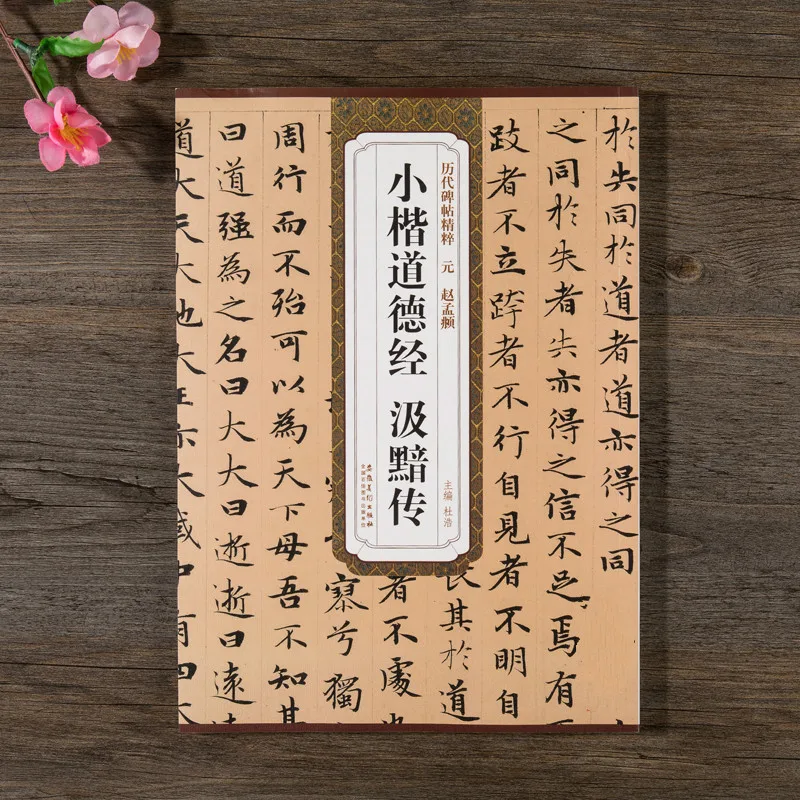 於失同於道者道亦得之同
之同於失者失亦得之信不足焉有
跂者不立跨者不行自見者不明自
历代碑帖精粹 元 赵孟頫
主编 杜浩
小楷道德经 汲黯传
安徽美术出版社
全国百佳图书出版单位
長其於道
者不處也
寥兮獨
周行而不殆可以為天下母吾不知其
曰道强為之名曰大大曰逝逝曰遠遠
道大天大地大王亦大域中有四